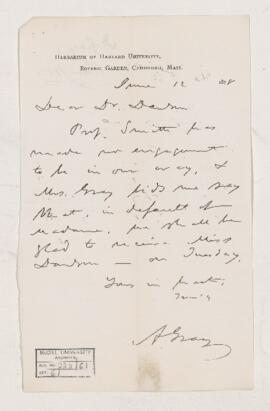 HERBARIUM OF HARVARD UNIVERSITY,
BOTANIC GARDEN, CAMBRIDGE, MASS.
June 12
Dear Dr. Dawson
Prof. Smith has
made no engagement
to be in our way, &
Mrs. Gray bids me say
that, in default of
Madame, we shall be
glad to receive Miss
Dawson — on Tuesday.
Yours in haste,
A. Gray
McGILL UNIVERSITY
ARCHIVES
ACC. NO.
REF.